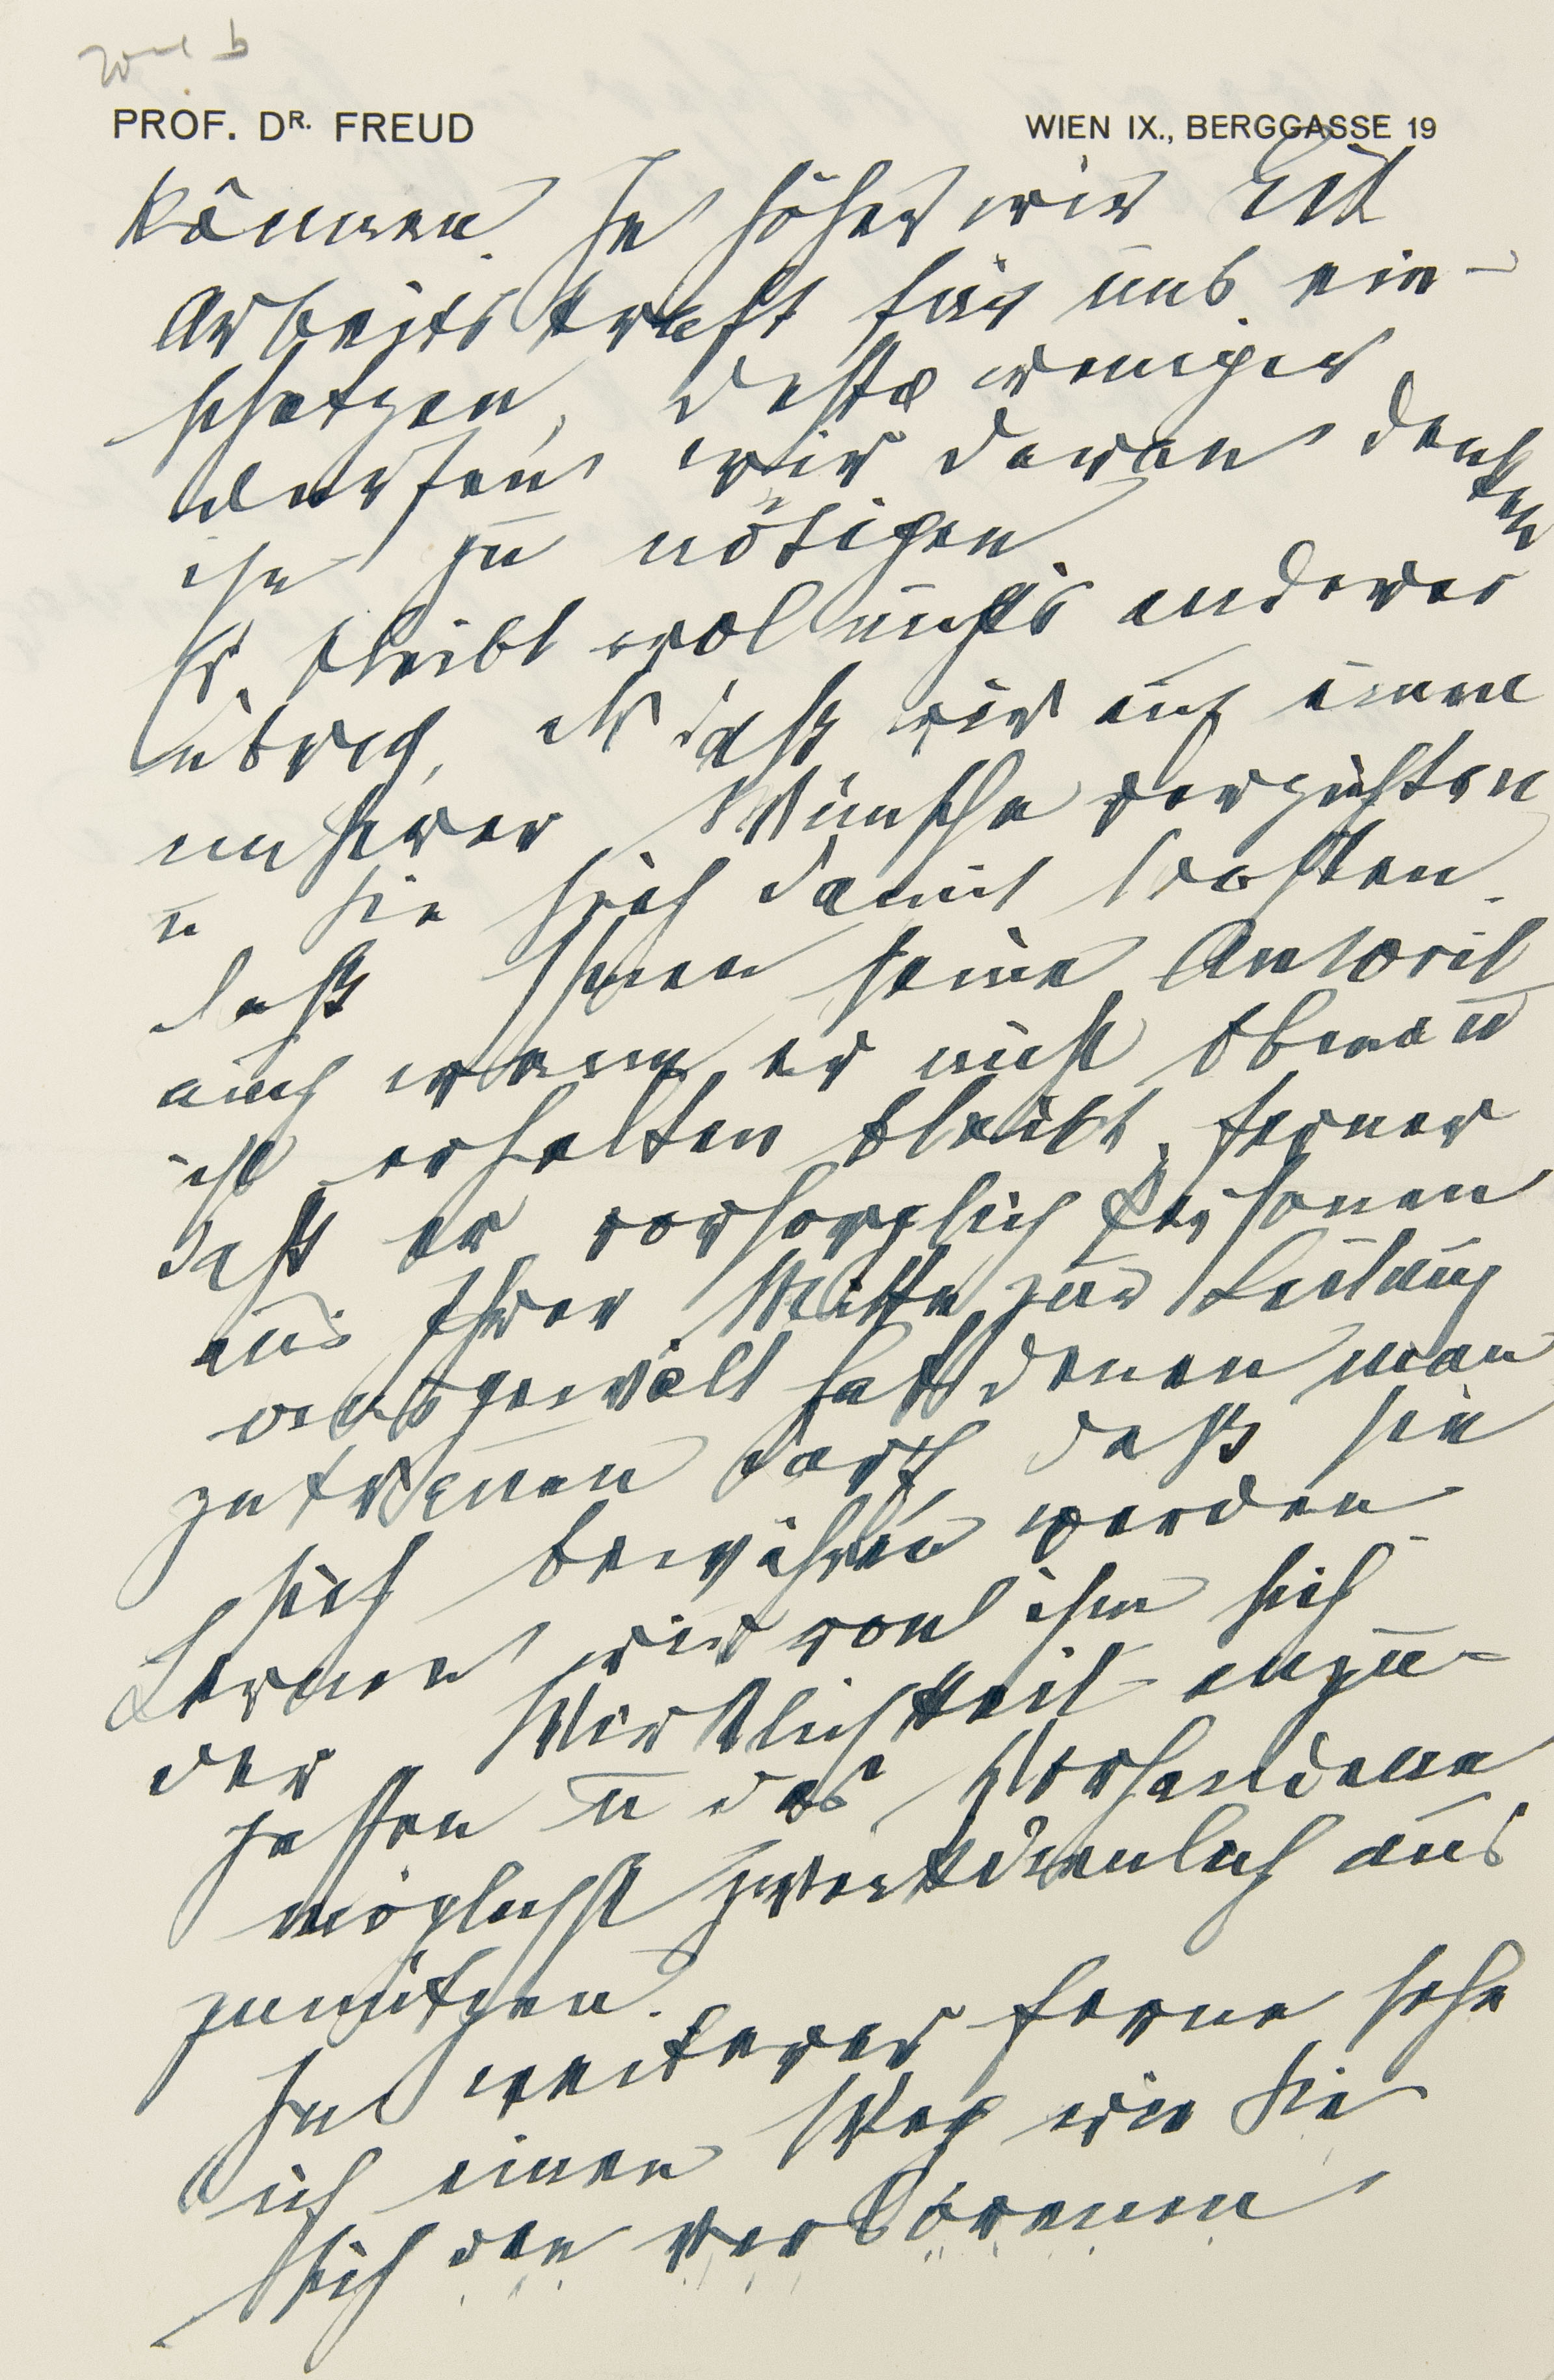 PROF. DR. FREUD WIEN IX., BERGGASSE 19
können. Je höher wir
Arbeitskraft für uns ein-
schätzen, desto weniger
dürfen wir daran denken
ihn zu nötigen.
Es bleibt wol nichts anderes
übrig, als daß wir auf
unserer Wünsche verzichten
u Sie sich damit trösten,
daß Ihnen seine Autorit
auch wenn er nicht Obmann
ist erhalten bleibt, ferner
daß er vorsorglich Personen
aus Ihrer Mitte zur Leitung
ausgewält hat denen man
zutrauen darf daß sie
sich bewähren werden.
Lernen wir von ihm sich
der Wirklichkeit anzu-
passen u das Vorhandene
möglichst zweckdienlich aus
zunützen.
In weiterer Ferne sehe
ich einen Weg wie Sie
sich den verlorenen